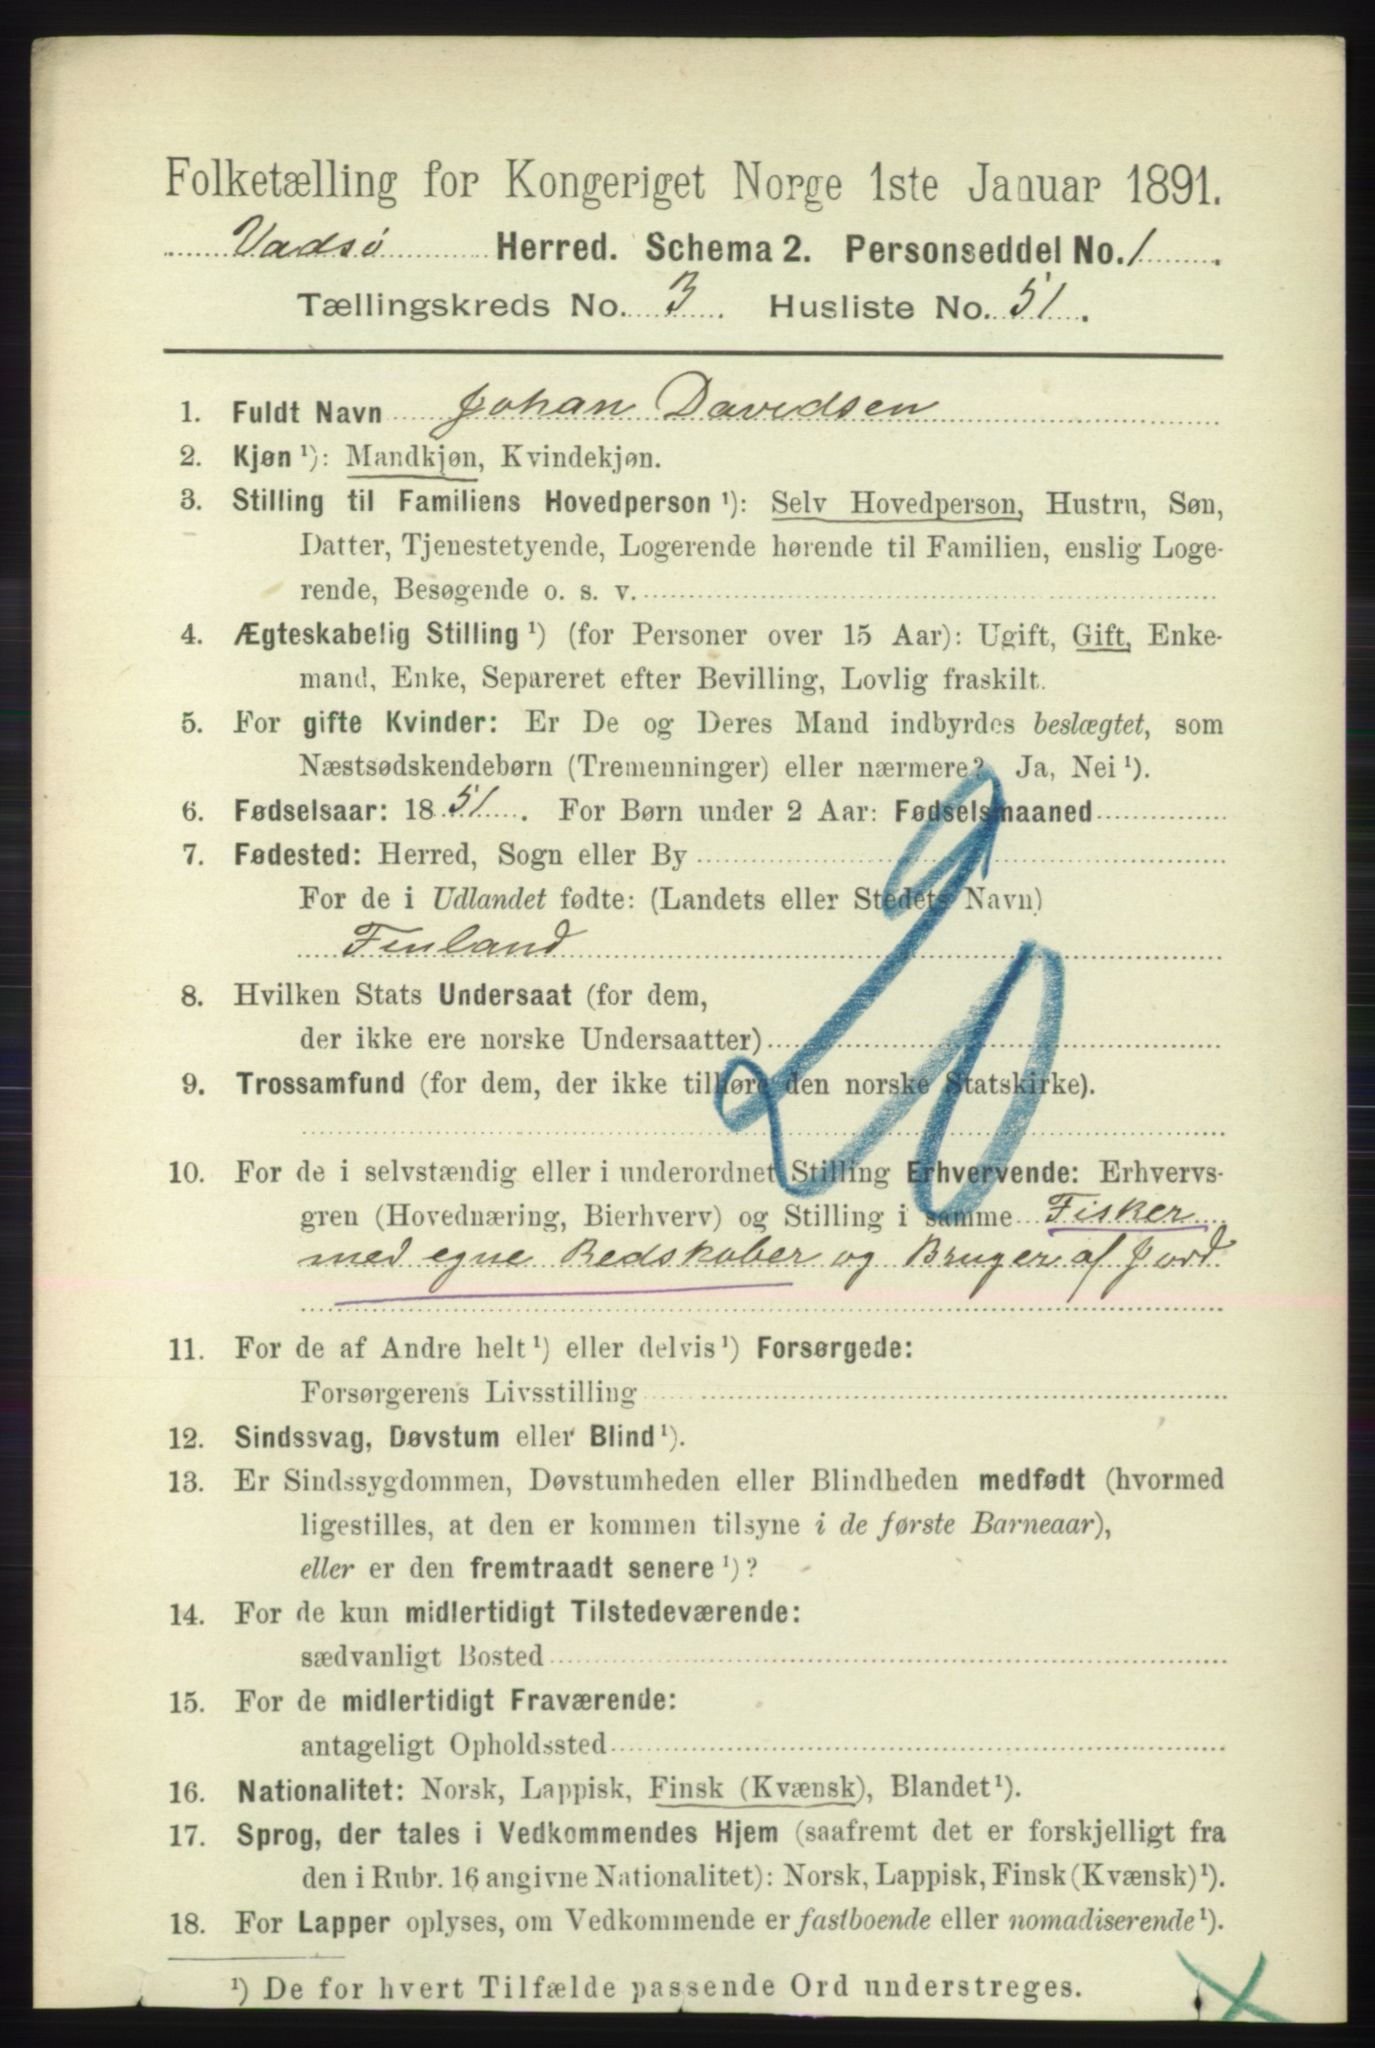 Folketælling for Kongeriget Norge 1ste Januar 1891.
Vadsø Herred. Schema 2. Personseddel No. 1.
Tællingskreds No. 3. Husliste No. 51.
1. Fuldt Navn Johan Davidsen
2. Kjøn ¹): Mandkjøn, Kvindekjøn.
3. Stilling til Familiens Hovedperson ¹): Selv Hovedperson, Hustru, Søn,
Datter, Tjenestetyende, Logerende hørende til Familien, enslig Loge-
rende, Besøgende o. s. v.
4. Ægteskabelig Stilling ¹) (for Personer over 15 Aar): Ugift, Gift, Enke-
mand, Enke, Separeret efter Bevilling, Lovlig fraskilt.
5. For gifte Kvinder: Er De og Deres Mand indbyrdes beslægtet, som
Næstsødskendebørn (Tremenninger) eller nærmere? Ja, Nei ¹).
6. Fødselsaar: 1851. For Børn under 2 Aar: Fødselsmaaned
7. Fødested: Herred, Sogn eller By
For de i Udlandet fødte: (Landets eller Stedets Navn)
Finland
20
8. Hvilken Stats Undersaat (for dem,
der ikke ere norske Undersaatter)
9. Trossamfund (for dem, der ikke tilhøre den norske Statskirke).
10. For de i selvstændig eller i underordnet Stilling Erhvervende: Erhvervs-
gren (Hovednæring, Bierhverv) og Stilling i samme Fisker
med egne Redskaber og Bruger af Jord
11. For de af Andre helt ¹) eller delvis ¹) Forsørgede:
Forsørgerens Livsstilling
12. Sindssvag, Døvstum eller Blind ¹).
13. Er Sindssygdommen, Døvstumheden eller Blindheden medfødt (hvormed
ligestilles, at den er kommen tilsyne i de første Barneaar),
eller er den fremtraadt senere ¹)?
14. For de kun midlertidigt Tilstedeværende:
sædvanligt Bosted
15. For de midlertidigt Fraværende:
antageligt Opholdssted
16. Nationalitet: Norsk, Lappisk, Finsk (Kvænsk), Blandet ¹).
17. Sprog, der tales i Vedkommendes Hjem (saafremt det er forskjelligt fra
den i Rubr. 16 angivne Nationalitet): Norsk, Lappisk, Finsk (Kvænsk) ¹).
18. For Lapper oplyses, om Vedkommende er fastboende eller nomadiserende ¹).
¹) De for hvert Tilfælde passende Ord understreges.